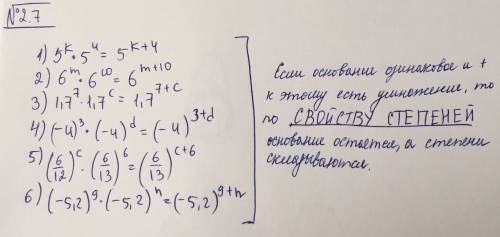 №2.7
1) 5^k · 5^4 = 5^{k+4}
2) 6^m · 6^{10} = 6^{m+10}
3) 1,7^7 · 1,7^c = 1,7^{7+c}
4) (-4)^3 · (-4)^d = (-4)^{3+d}
5) (6/12)^c · (6/13)^6 = (6/13)^{c+6}
6) (-5,2)^g · (-5,2)^n = (-5,2)^{g+n}
Если основание одинаковое и +
к этому есть умножение, то
по СВОЙСТВУ СТЕПЕНЕЙ
основание остается, а степени
складываются.